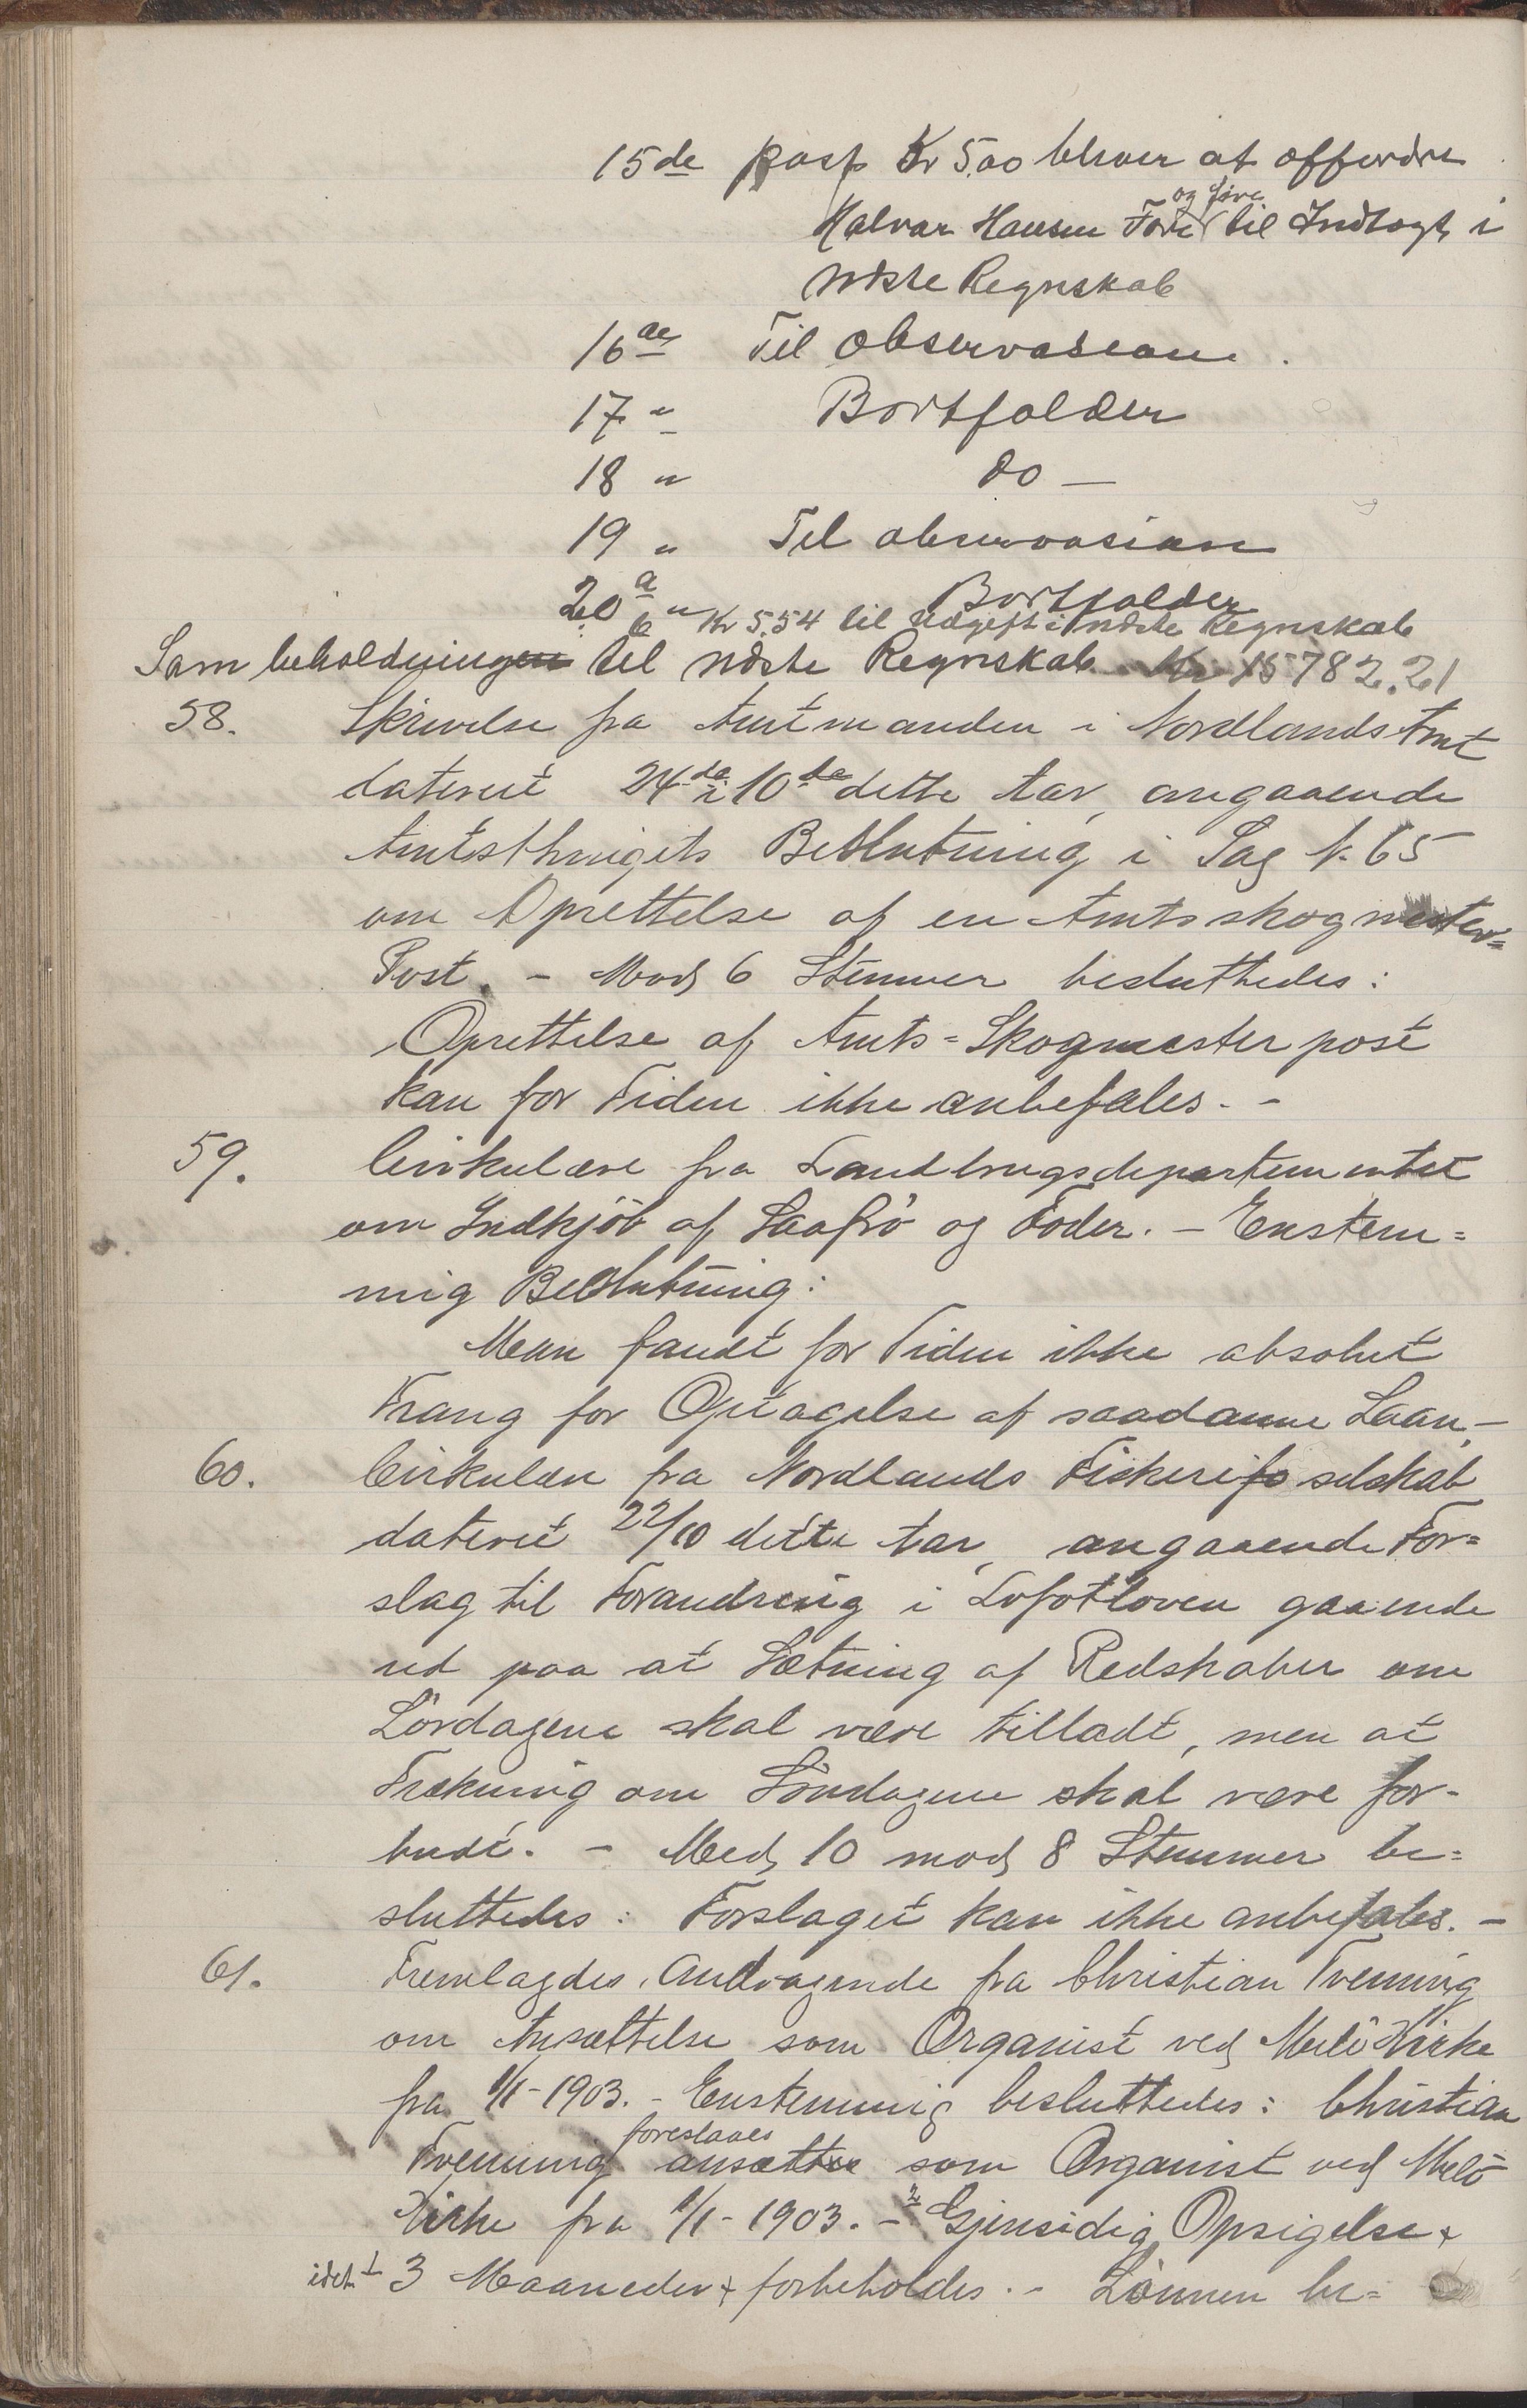 15de post Kr 5.00 bliver at affordre
Halvar Hansen Fore og føre til Indtægt i
næste Regnskab
16de Til observasion.
17 " Bortfalder
18 " do —
19 " Til observasion
20 a Bortfalder
b " Kr 5.54 til Udgift i næste Regnskab
Som beholdning til næste Regnskab Kr 15782.21
58. Skrivelse fra Amtmanden i Nordlands Amt
dateret 24de i 10de dette Aar, angaaende
Amtsthingets Beslutning i Sag N. 65
om Oprettelse af en Amtsskogmester=
Post. - Mod 6 Stemmer besluttedes:
Oprettelse af Amts=Skogmesterpost
kan for Tiden ikke anbefales. -
59. Cirkulære fra Landbrugsdepartementet
om Indkjöb af Saafrö og Foder. - Enstem=
mig Beslutning:
Man fandt for Tiden ikke absolut
Trang for Optagelse af saadanne Laan. -
60. Cirkulær fra Nordlands Fiskeriselskab
dateret 22/10 dette Aar, angaaende For=
slag til Forandring i Lofotloven gaaende
ud paa at Sætning af Redskaber om
Lördagene skal være tilladt, men at
Trækning om Söndagene skal være for-
budt. - Med 10 mod 8 Stemmer be=
sluttedes: Forslaget kan ikke anbefales. -
61. Fremlagdes Andragende fra Christian Tvenning
om Ansættelse som Organist ved Melö Kirke
fra 1/1-1903. - Enstemmig besluttedes: Christian
Tvenning foreslaaes ansat som Organist ved Melö
Kirke fra 1/1-1903. - Gjensidig Opsigelse
idet 3 Maaneder forbeholdes. - Lönnen be=